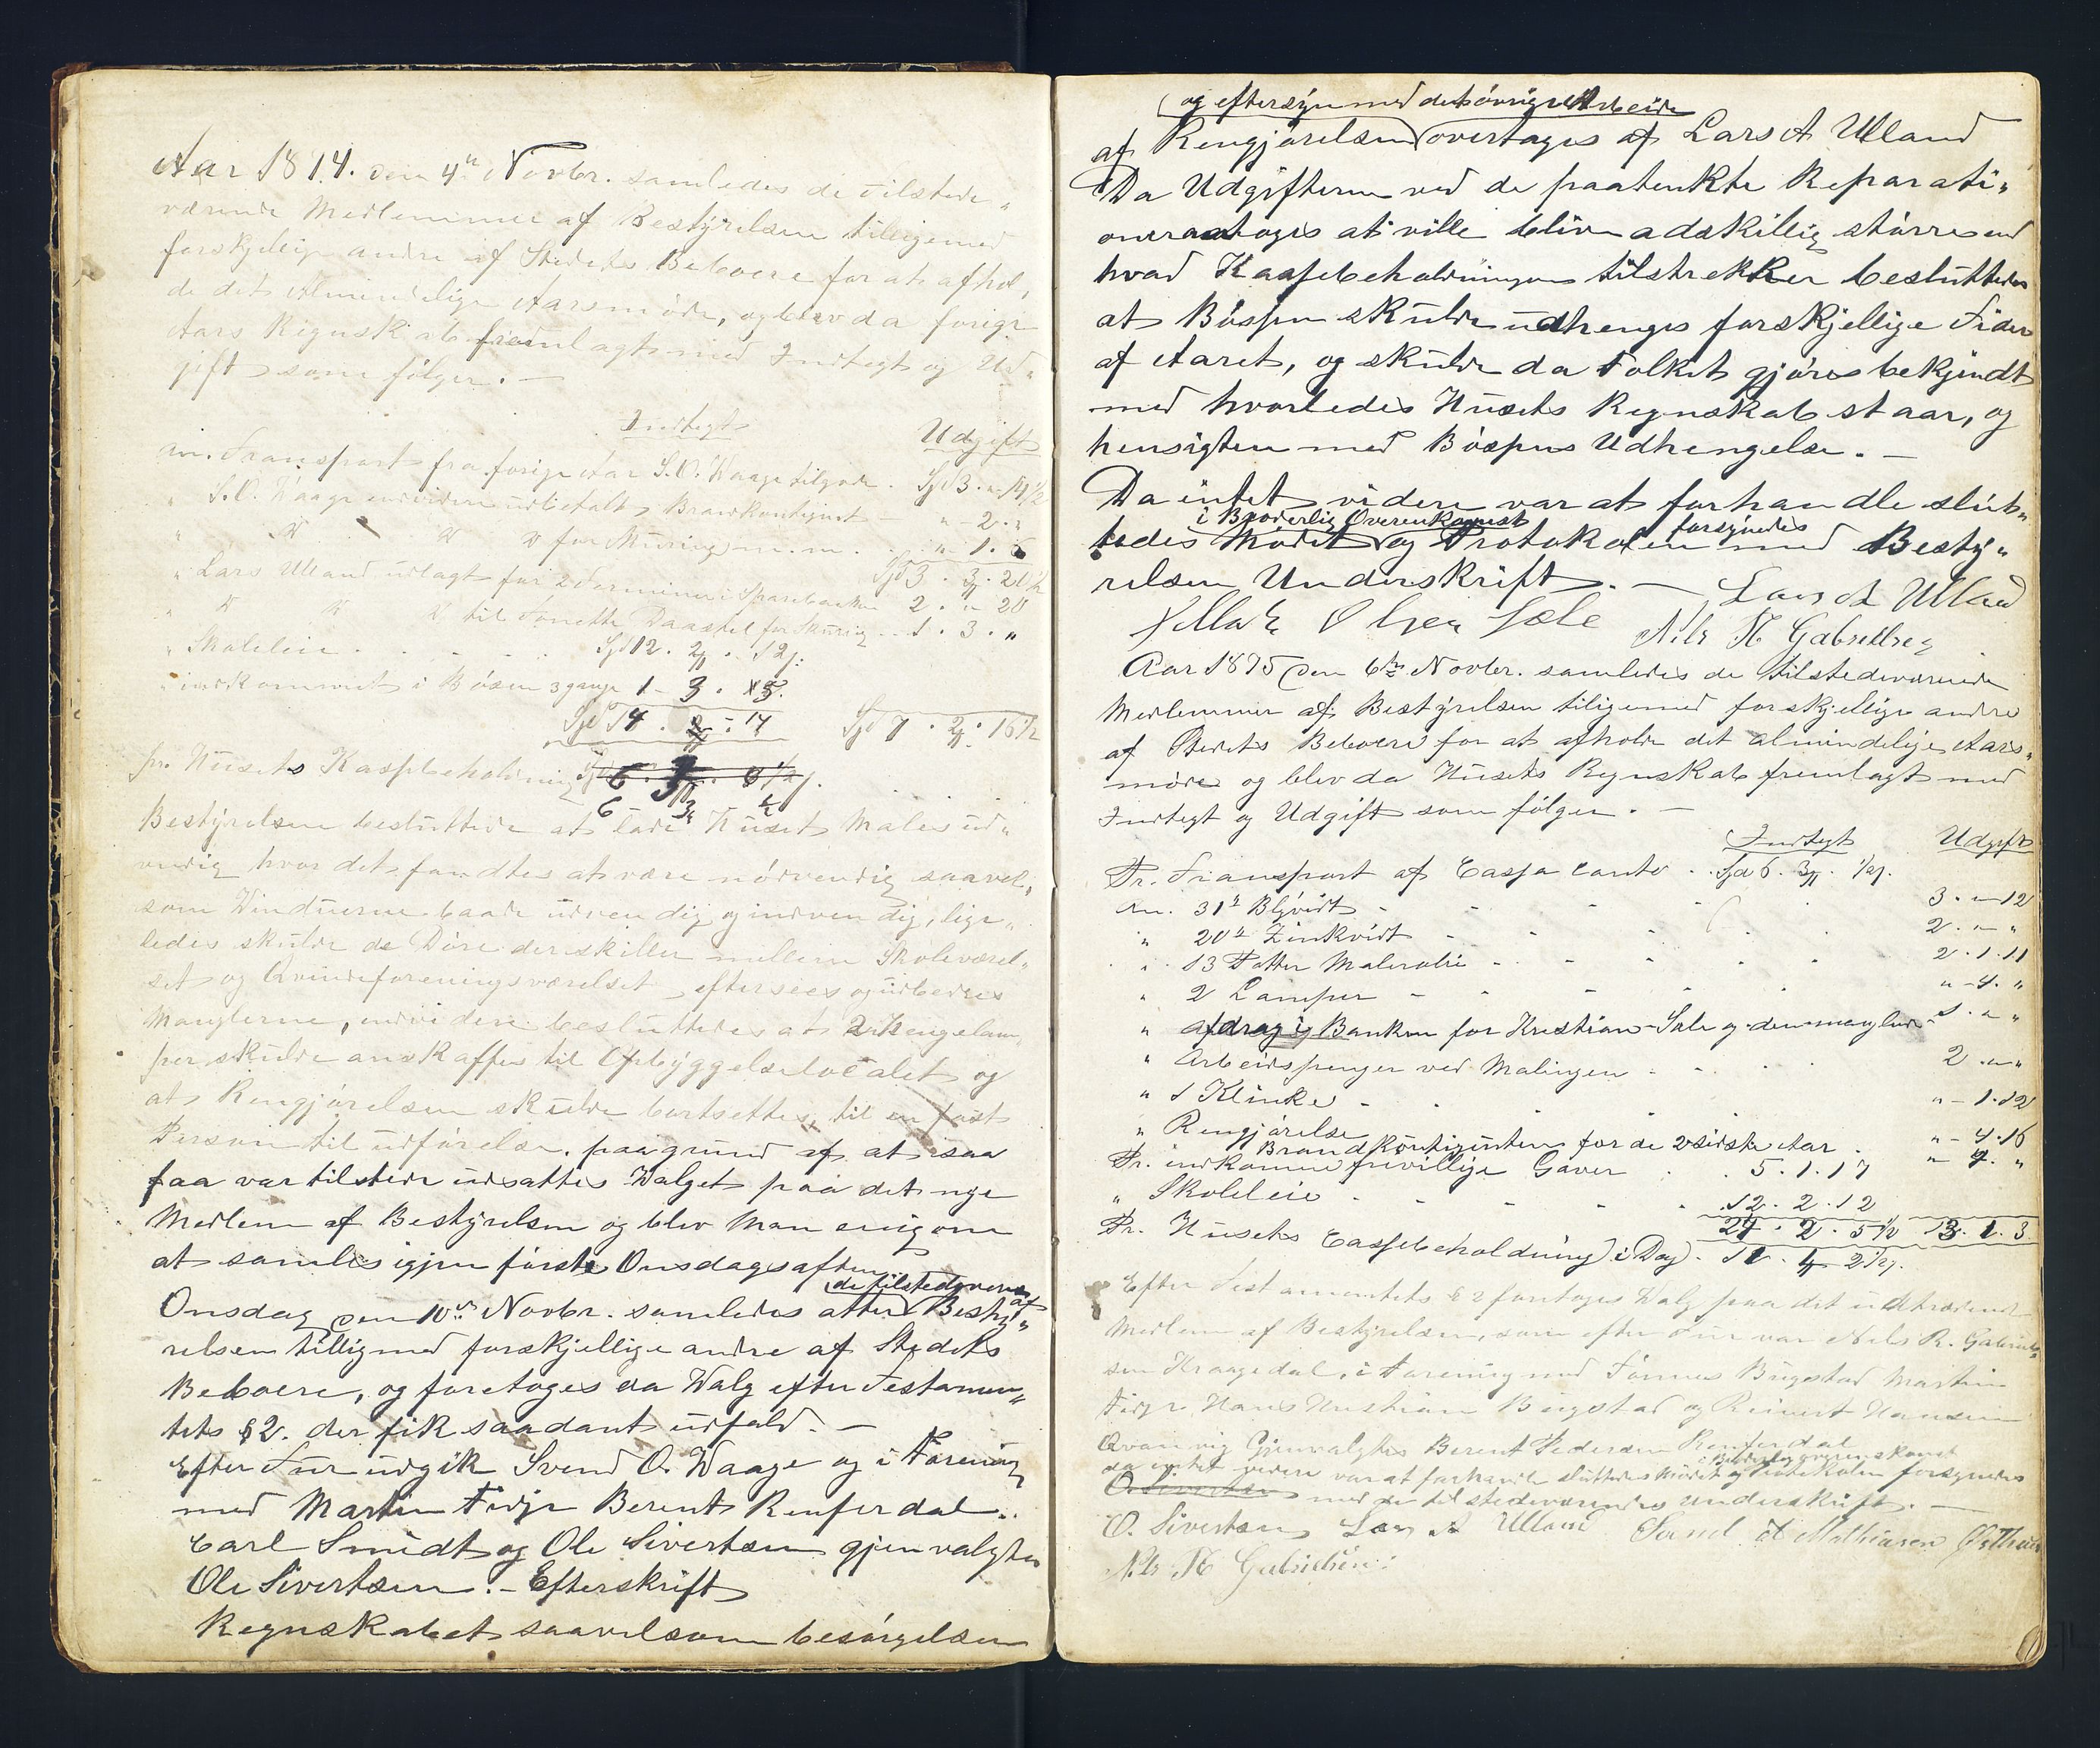 Aar 1874. den 4de Novbr. samledes de tilstede„
værende Medlemmer af Bestýrelsen tilligemed
forskjellige andre af Stedets Beboere for at afhol„
de det Almindelige Aarsmöde, og blev da forige
Aars Regnskab fremlagt med Indtegt og Ud„
gift som fölger. —
Indtegt Udgift
an. Transport fra forige Aar S. O. Waage tilgode . Spd 3 . „ . 14 1/2
„ S. O. Waage endvidere udbetalt Brandkontigent „ - 2 . „
„ D D D for Muring m.m. . „ . 1. 6
Spd 3 . 3 . 20 1/2
„ Lars Ulland udlagt for 2 Terminer i Sparebanken 2 . „ - 20
„ D D D til Tönette Daastøl for Skuring . . 1 . 3 . „
„ Skoleleie . . . . . Spd 12 . 2 . 12 s.
„ indkommet i Bösen 3 gange 1 - 3 . 3.
Spd 14 . - 14 Spd 7 . 2 . 16 1/2
pr. Húsets Kassebeholdning Spd 6 . 3 . 1/2 s.
6 3 1/2
Bestýrelsen besluttede at lade Húset Males ud„
vendig hvor det fandtes at være nödvendig saavel„
som Vinduerne baade udvendig og indvendig, lige„
ledes skulde de Döre der skiller mellem Skoleværel„
set og Qvindeforeningsværelset eftersees og údbedres
Manglerne, endvidere besluttedes at 2 Hengelam
per skulde anskaffes til Opbýggelseslocalet og
at Rengjörelsen skulde bortsettes, til en fast
Person til udförelse. paa grund af at saa
faa var tilstede udsattes Valget paa det nye
Medlem af Bestýrelsen og blev Man enig om
at samles igjen förste Onsdagsaften.
de tilstedværende af
Onsdag den 10de Novbr. samledes atter Bestý„
relsen tilligmed forskjellige andre af Stedets
Beboere, og foretoges da Valg efter Testamen„
tets § 2. der fik saadant udfald. —
Efter Tur udgik Svend O. Waage og i Forening
med Martin Fidje Berent Renferdal.
Carl Smidt og Ole Sivertsen gjenvalgtes
Ole Sivertsen. - Efterskrift
Regnskabet saavelsom besörgelsen
og eftersýn med det övrige Arbeide
af Rengjörelsen overtages af Lars A Ulland
Da Udgifterne ved de paatenkte Reparati„
oner antoges at ville blive adskillig större end
hvad Kassebeholdningen tilstrekker besluttedes
at Bössen skulde udhenges forskjellige Tider
af Aaret, og skulde da Folket gjöres bekjendt
med hvorledes Húsets Regnskab staar, og
hensigten med Bössens Udhengelse. —
Da intet videre var at forhandle slút„
i Broderlig Overenkomst forsýnedes
tedes Mödet og Protokolen med Bestý„
relsen Underskrift. — Lars A Ulland
Olsen Sæle Nils R Gabrielsen
Aar 1875 den 6te Novbr. samledes de tilstedeværende
Medlemmer af Bestýrelsen tiligemed forskjellige andre
af Stedets Beboere for at afholde det almindelige Aars„
möde og blev da Húsets Regnskab fremlagt med
Indtegt og Udgift som fölger. —
Indtegt Udgift
Pr. Transport af Cassa Conto . . Spd 6 . 3 . 1/2 s.
An. 31 ℔ Blýhvidt - - - - 3 . „ - 12
„ 20 ℔ Zinkhvidt - - - - 2 . „ - „
„ 13 Potter Maleroli - - - - 2 . 1 . 11
„ 2 Lamper - - - - „ - 4 . „
„ afdrag i Banken for Kristian Sæle og - 1 . „ „
„ Arbeidspenger ved Malingen - - . . 2 . „ „
„ 1 Klinke - . . . „ - 1 . 12
„ Rengjörelse . . . „ - 4 . 16
Brandkontigenten for de 2 sidste Aar . „ 4. „
Pr. indkomne frivillige Gaver . . 5 . 1 . 17
„ Skoleleie - - - - . 12 . 2 . 12
24 . 2 . 5 1/2 13 . 1 . 3
Pr. Húsets Cassebeholdning i Dag . 11 . 4 2 1/2 s.
Efter Testamentets § 2 foretoges Valg paa det udtrædende
Medlem af Bestýrelsen, som efter Tur var Nels R. Gabriel„
sen Kraagedal, i Forening med Tönnes Búgstad Martin
Fidje Hans Kristian Búgstad og Reinert Hansen
Qvanvig Gjenvalgtes Berent Pedersen Renferdal
i Broderlig overenskomst
da intet videre var at forhandle sluttedes Mödet og Protokolen forsynedes
O. Sivertsen med de tilstedeværendes underskrift. —
O. Sivertsen Lars A Ulland Mathiasen
Nils R Gabrielsen.